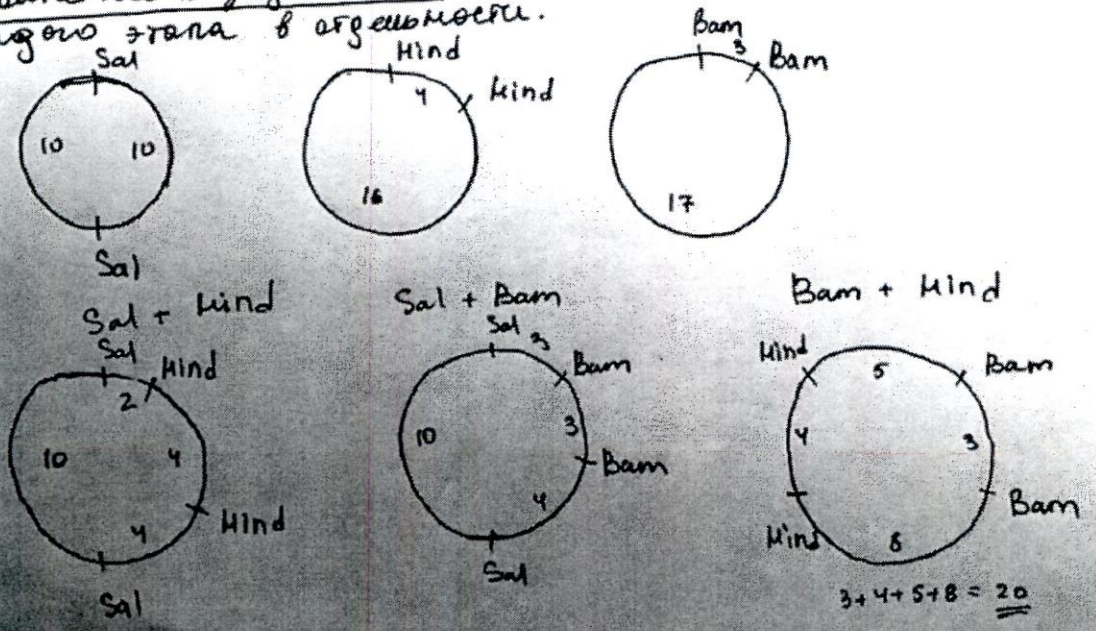 дого этапа в отдельности.
Sal
10 10
Sal
Hind
4 Hind
16
Bam
3 Bam
17
Sal + Hind
Sal
Hind
2
10 4
Hind
4
Sal
Sal + Bam
Sal 3
Bam
10 3
Bam
4
Sal
Bam + Hind
Hind 5 Bam
4 3
Bam
Hind 8
3+4+5+8 = 20